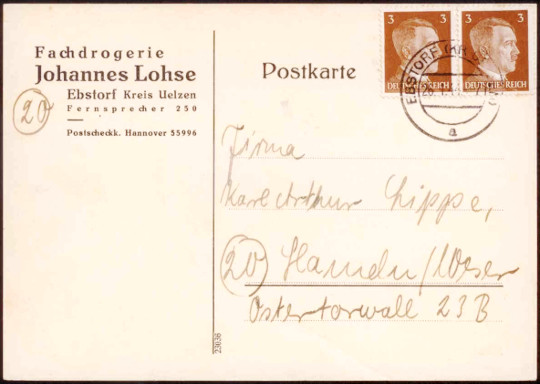 Fachdrogerie
Johannes Lohse
Ebstorf Kreis Uelzen
Fernsprecher 250
Postscheckk. Hannover 55996
20
Postkarte
3 3
DEUTSCHES REICH DEUTSCHES REICH
EBSTORF (KR
a
Firma
Karl Arthur Lippe,
20 Hameln/Weser
Ostertorwall 23 B
23036